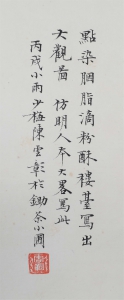 點染胭脂滴粉酥楼䑓寫出
大觀啚仿明人本大畧寫此
丙戌小雨少梅陳雲彰於鋤茶小圃